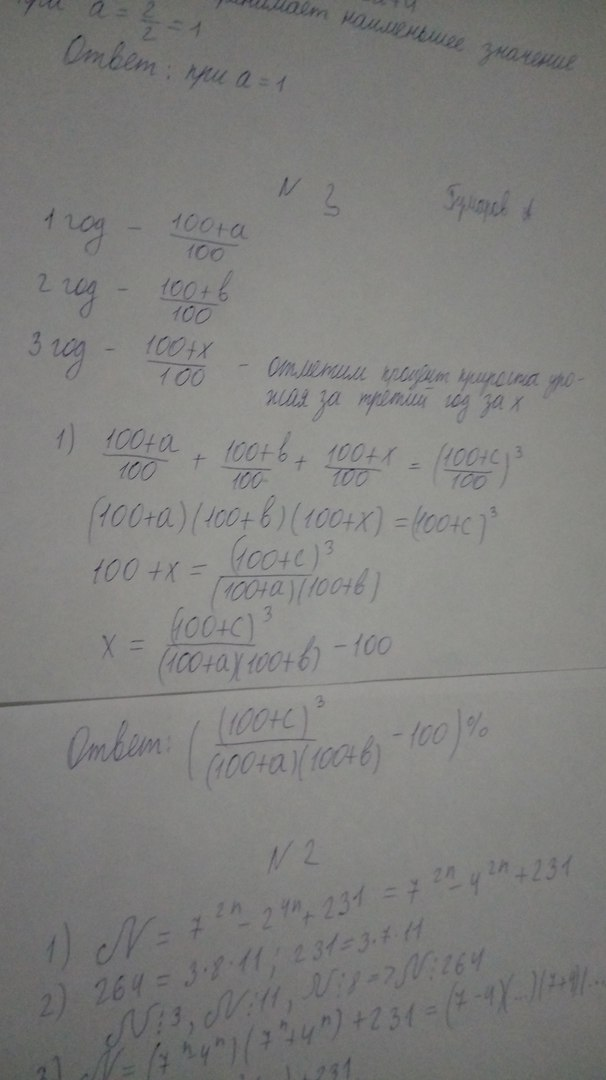 a = 2/2 = 1 наименьшее значение
Ответ: при a = 1
N 3
1 год - (100+a)/100
2 год - (100+в)/100
3 год - (100+x)/100 - отметим процент прироста уро-
жая за третий год за x
1) (100+a)/100 + (100+в)/100 + (100+x)/100 = ((100+c)/100)^3
(100+a)(100+в)(100+x) = (100+c)^3
100+x = (100+c)^3/((100+a)(100+в))
x = (100+c)^3/((100+a)(100+в)) - 100
Ответ: ((100+c)^3/((100+a)(100+в)) - 100)%
N 2
1) N = 7^2n - 2^4n + 231 = 7^2n - 4^2n + 231
2) 264 = 3·8·11; 231 = 3·7·11
N⋮3, N⋮11, N⋮8 => N⋮264
3) N = (7^n - 4^n)(7^n + 4^n) + 231 = (7-4)(...)(7+4)(...